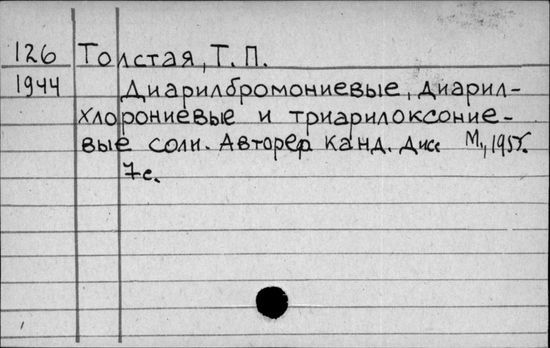 126 Толстая, Т. П.
1944 Диарилбромониевые, диарил-
хлорониевые и триарилоксоние-
вые соли. Автореф канд. дисс М.,
7с.